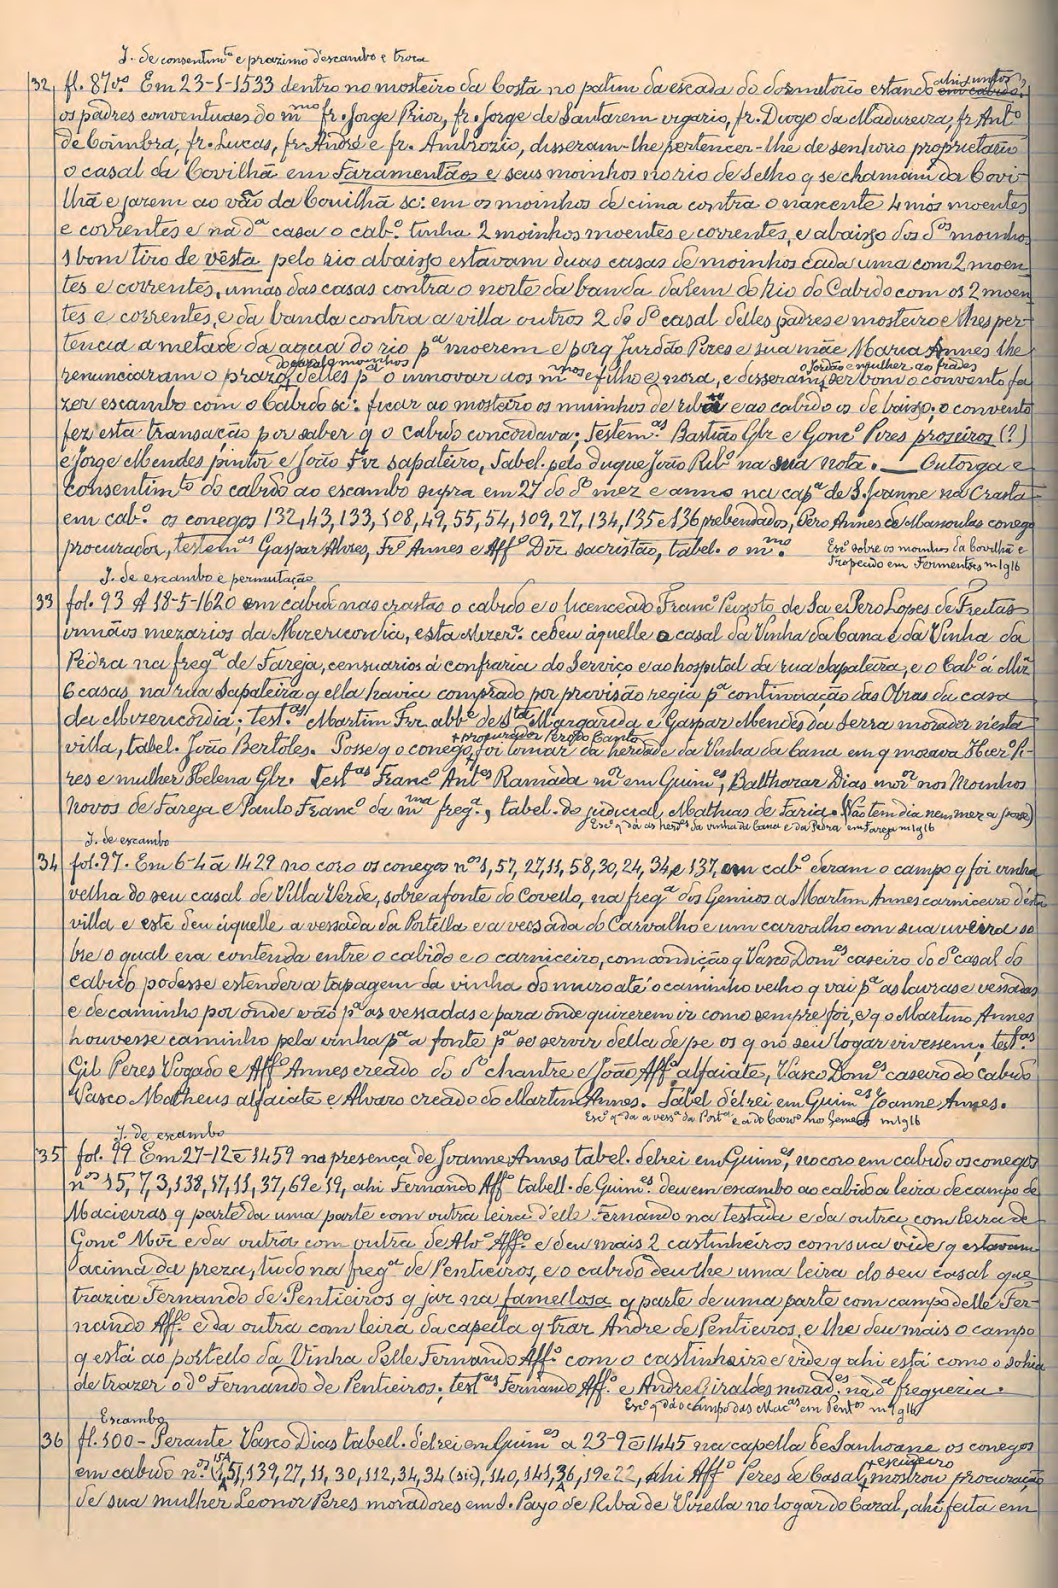 J. de consentimto e prazimo d'escambo e troca
32 fl. 87vo. Em 23-1-1533 dentro no mosteiro da Costa no patim da escada do dormitorio estando ahi juntos
os padres conventuaes do mmo fr. Jorge Prior, fr. Jorge de Santarem vigario, fr. Diogo da Madureira, fr Anto
de Coimbra, fr. Lucas, fr. André e fr. Ambrozio, disseram-lhe pertencer-lhe de senhorio proprietario
o casal da Covilhã em Faramentãos e seus moinhos no rio de Selho q se chamam da Covi-
lhã e jazem ao vão da Couilhã sc: em os moinhos de cima contra o nascente 4 mós moentes
e correntes e na da casa o cabo. tinha 2 moinhos moentes e correntes, e abaixo dos dos moinhos
1 bom tiro de vésta pelo rio abaixo estavam duas casas de moinhos cada uma com 2 moen-
tes e correntes, umas das casas contra o norte da banda dalem do rio do Cabido com os 2 moen-
tes e correntes, e da banda contra a villa outros 2 do do casal delles padres e mosteiro e lhes per-
tencia a metade da agua do rio pa moerem e porq Jurdão Pires e sua mãe Maria Annes lhe
renunciaram o prazo delles pa o innovar aos mmos e filho e nora, e disseram o Jordão e mulher ao frades ser bom o convento fa-
zer escambo com o Cabido sc: ficar ao mosteiro os muinhos de riba e ao cabido os de baixo; o convento
fez esta transação por saber q o cabido concordava; testem.as Bastião Glz e Gonço Pires proseiros (?)
e Jorge Mendes pintor e João Frz sapateiro, Tabel. pelo duque João Ribo na sua nota. — Outorga e
consentimto do cabido ao escambo supra em 27 do do mez e anno na capa de S. Joanne na Crasta
em cabo. os conegos 132, 43, 133, 108, 49, 55, 54, 109, 27, 134, 135 e 136 prebendados, Pero Annes de Mansoulas conego
procurador, testemas Gaspar Alvres, Fro Annes e Affo Diz sacristão, tabel. o mmo.
Esco sobre os moinhos da Covilhã e
Tropecido em Fermentões m1g16
J. de escambo e permutação
33 fol. 93 A 18-5-1620 em cabido nas crastas o cabido e o licenceado Franco Peixoto de Sa e Pero Lopes de Freitas
irmãos mezarios da Mizericordia, esta Mizera. cedeu áquelle o casal da Vinha da Cana e da Vinha da
Pedra na frega de Fareja, censuarios á confraria do Serviço e ao hospital da rua Sapateira, e o Cabo á Miza
6 casas na rua Sapateira q ella havia comprado por provisão regia pa continuação das Obras da casa
da Mizericordia; test.as Martim Frz abbe de Sta Margarida e Gaspar Mendes da Serra morador n'esta
villa, tabel. João Bertoles. Posse q o conego + procurador Pero do Canto foi tomar da herdade da Vinha da Cana em q morava Hiero Pi-
res e mulher Helena Glz. Testas Franco Antes Ramada mor em Guimes, Balthazar Dias mor nos Moinhos
Novos de Fareja e Paulo Franco da mma frega., tabel. do judicial Mathias de Faria. (Não tem dia nem mez a posse)
Esco q dá as herdes da vinha da Cana e da Pedra em Fareja m1g16
J. de escambo
34 fol. 97. Em 6-4 a 1429 no coro os conegos nos 1, 57, 27, 11, 58, 30, 24, 34 e 137, em cabo deram o campo q foi vinha
velha do seu casal de Villa Verde, sobre a fonte do Covello, na frega dos Gemios a Martim Annes carniceiro d'esta
villa e este deu áquelle a vessada da Portella e a vessada do Carvalho e um carvalho com sua uveira so-
bre o qual era contenda entre o cabido e o carniceiro, com condição q Vasco Domes caseiro do do casal do
cabido podesse estender a tapagem da vinha do muro até o caminho velho q vai pa as lavras e vessadas
e de caminho por onde vão pa as vessadas e para onde quizerem ir como sempre foi, e q o Martim Annes
houvesse caminho pela vinha pa a fonte pa se servir della de pe os q no seu logar vivessem; test.as
Gil Peres Vogado e Affo Annes creado do do chantre e João Affo alfaiate, Vasco Domes caseiro do cabido
Vasco Matheus alfaiate e Alvaro creado do Martim Annes. Tabel d'elrei em Guimes Joanne Annes.
Esco q da a vessa da Porta e a do Carvo nos Gemeos m1g16
J. de escambo
35 fol. 99 Em 27-12 e 1459 na presença de Joanne Annes tabel. delrei em Guimes, no coro em cabido os conegos
nos 15, 7, 3, 138, 17, 11, 37, 69 e 19, ahi Fernando Affo tabell. de Guimes. deu em escambo ao cabido a leira de campo de
Macieiras q parte da uma parte com outra leira d'elle Fernando na testada e da outra com leira de
Gonço Miz e da outra com outra de Alvo Affo e deu mais 2 castinheiros com sua vide q estavam
acima da preza, tudo na frega de Pentieiros, e o cabido deu lhe uma leira do seu casal que
trazia Fernando de Pentieiros q jaz na famellosa q parte de uma parte com campo delle Fer-
nando Affo e da outra com leira da capella q traz Andre de Pentieiros, e lhe deu mais o campo
q está ao portello da Vinha delle Fernando Affo com o castinheiro e vide q ahi está como o sohia
de trazer o do Fernando de Pentieiros; testas Fernando Affo e Andre Giraldes morades. na da freguezia.
Esco q dá o campo das Macas em Pentos m1g16
Escambo
36 fl. 100 - Perante Vasco Dias tabell. d'elrei em Guimes a 23-9 e 1445 na capella de Sanhoane os conegos
em cabido nos. (1, 5), 139, 27, 11, 30, 112, 34, 34 (sic), 140, 141, 36, 19 e 22, ahi Affo Peres de Casal + escudeiro mostrou procuração
de sua mulher Leonor Peres moradores em S. Payo de Riba de Vizella no logar do Cazal, ahi feita em